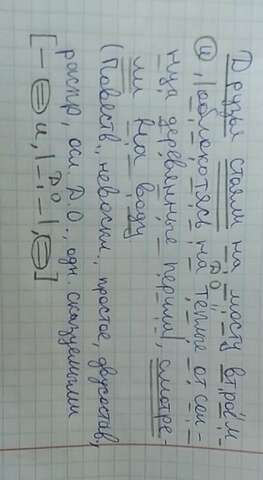 Друзья стояли на мосту втроём
ДО
и, |облокотясь на теплые от солн-
нца деревянные перила|, смотре-
ли на воду
(Повеств., невоскл., простое, двусостав,
распр, осл ДО., одн. сказуемыми
ДО
[— = и, |-.-|, =]